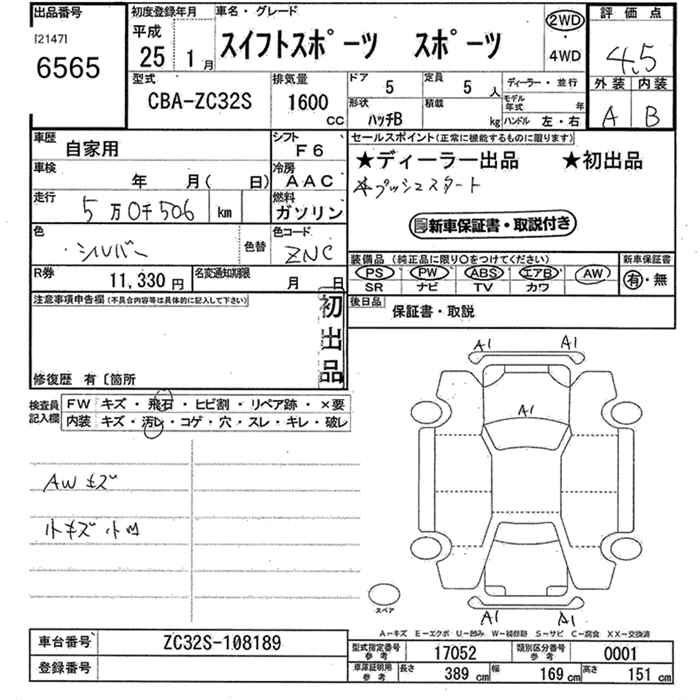 出品番号
[2147]
6565
初度登録年月
平成
25 1月
車名・グレード
スイフトスポーツ スポーツ
2WD
・
4WD
評価点
4.5
外装 内装
A B
型式
CBA-ZC32S
排気量
1600
CC
ドア
5
定員
5 人
形状
ハッチB
積載
kg
ディーラー・並行
モデル年式 年
ハンドル 左・右
車歴
自家用
シフト
F6
車検
年 月( 日)
冷房
AAC
走行
5万0千506 km
燃料
ガソリン
色
シルバー
色替
色コード
ZNC
R券
11,330 円
名変通知期限
月 日
セールスポイント(正常に機能するものに限ります)
★ディーラー出品 ★初出品
★プッシュスタート
新車保証書・取説付き
装備品(純正品に限り○をつけてください)
PS PW ABS エアB AW
SR ナビ TV カワ
新車保証書
有・無
後日品
保証書・取説
注意事項申告欄(不具合内容等は具体的に記入して下さい)
初出品
修復歴 有〔箇所
検査員記入欄
FW キズ・飛石・ヒビ割・リペア跡・×要
内装 キズ・汚レ・コゲ・穴・スレ・キレ・破レ
AWキズ
小キズ小凹
A1 A1
A1
スペア
A1 A1
A-キズ E-エクボ U-凹み W-補修跡 S-サビ C-腐食 XX-交換済
車台番号
ZC32S-108189
登録番号
型式指定番号参考
17052
類別区分番号参考
0001
車庫証明用参考
長さ 389 cm 幅 169 cm 高さ 151 cm